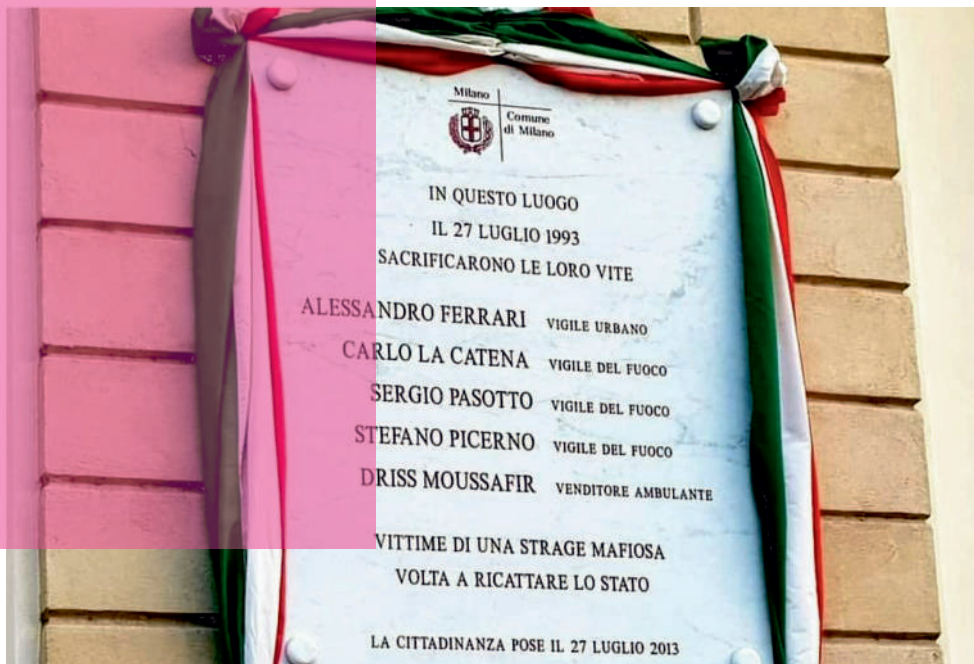 Milano
Comune
di Milano
IN QUESTO LUOGO
IL 27 LUGLIO 1993
SACRIFICARONO LE LORO VITE
ALESSANDRO FERRARI VIGILE URBANO
CARLO LA CATENA VIGILE DEL FUOCO
SERGIO PASOTTO VIGILE DEL FUOCO
STEFANO PICERNO VIGILE DEL FUOCO
DRISS MOUSSAFIR VENDITORE AMBULANTE
VITTIME DI UNA STRAGE MAFIOSA
VOLTA A RICATTARE LO STATO
LA CITTADINANZA POSE IL 27 LUGLIO 2013